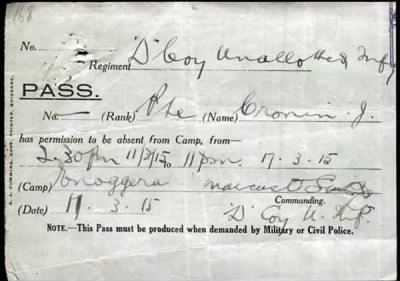 168
No. 'D' Coy Unallotted Infy
Regiment
PASS.
No. — (Rank) Pte (Name) Cronin. J.
has permission to be absent from Camp, from
2.30pm 11/3/15 to 11pm. 17.3.15
(Camp) Enoggera Marcus
Commanding.
(Date) 11.3.15 'D' Coy U. Inf.
NOTE.—This Pass must be produced when demanded by Military or Civil Police.
A. J. CUMMING, GOVT. PRINTER, BRISBANE.